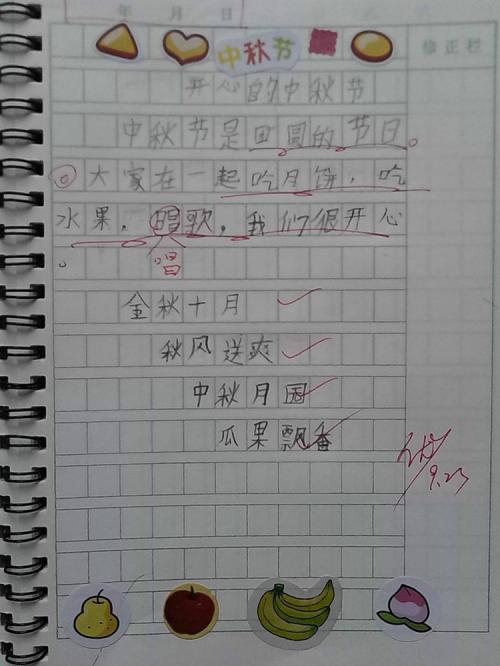 年 月 日
中秋节
修正栏
开心的中秋节
中秋节是田圆的节日。
大家在一起吃月饼，吃
水果，唱歌，我们很开心
。
唱
金秋十月
秋风送爽
中秋月园
瓜果飘香
优
9.23